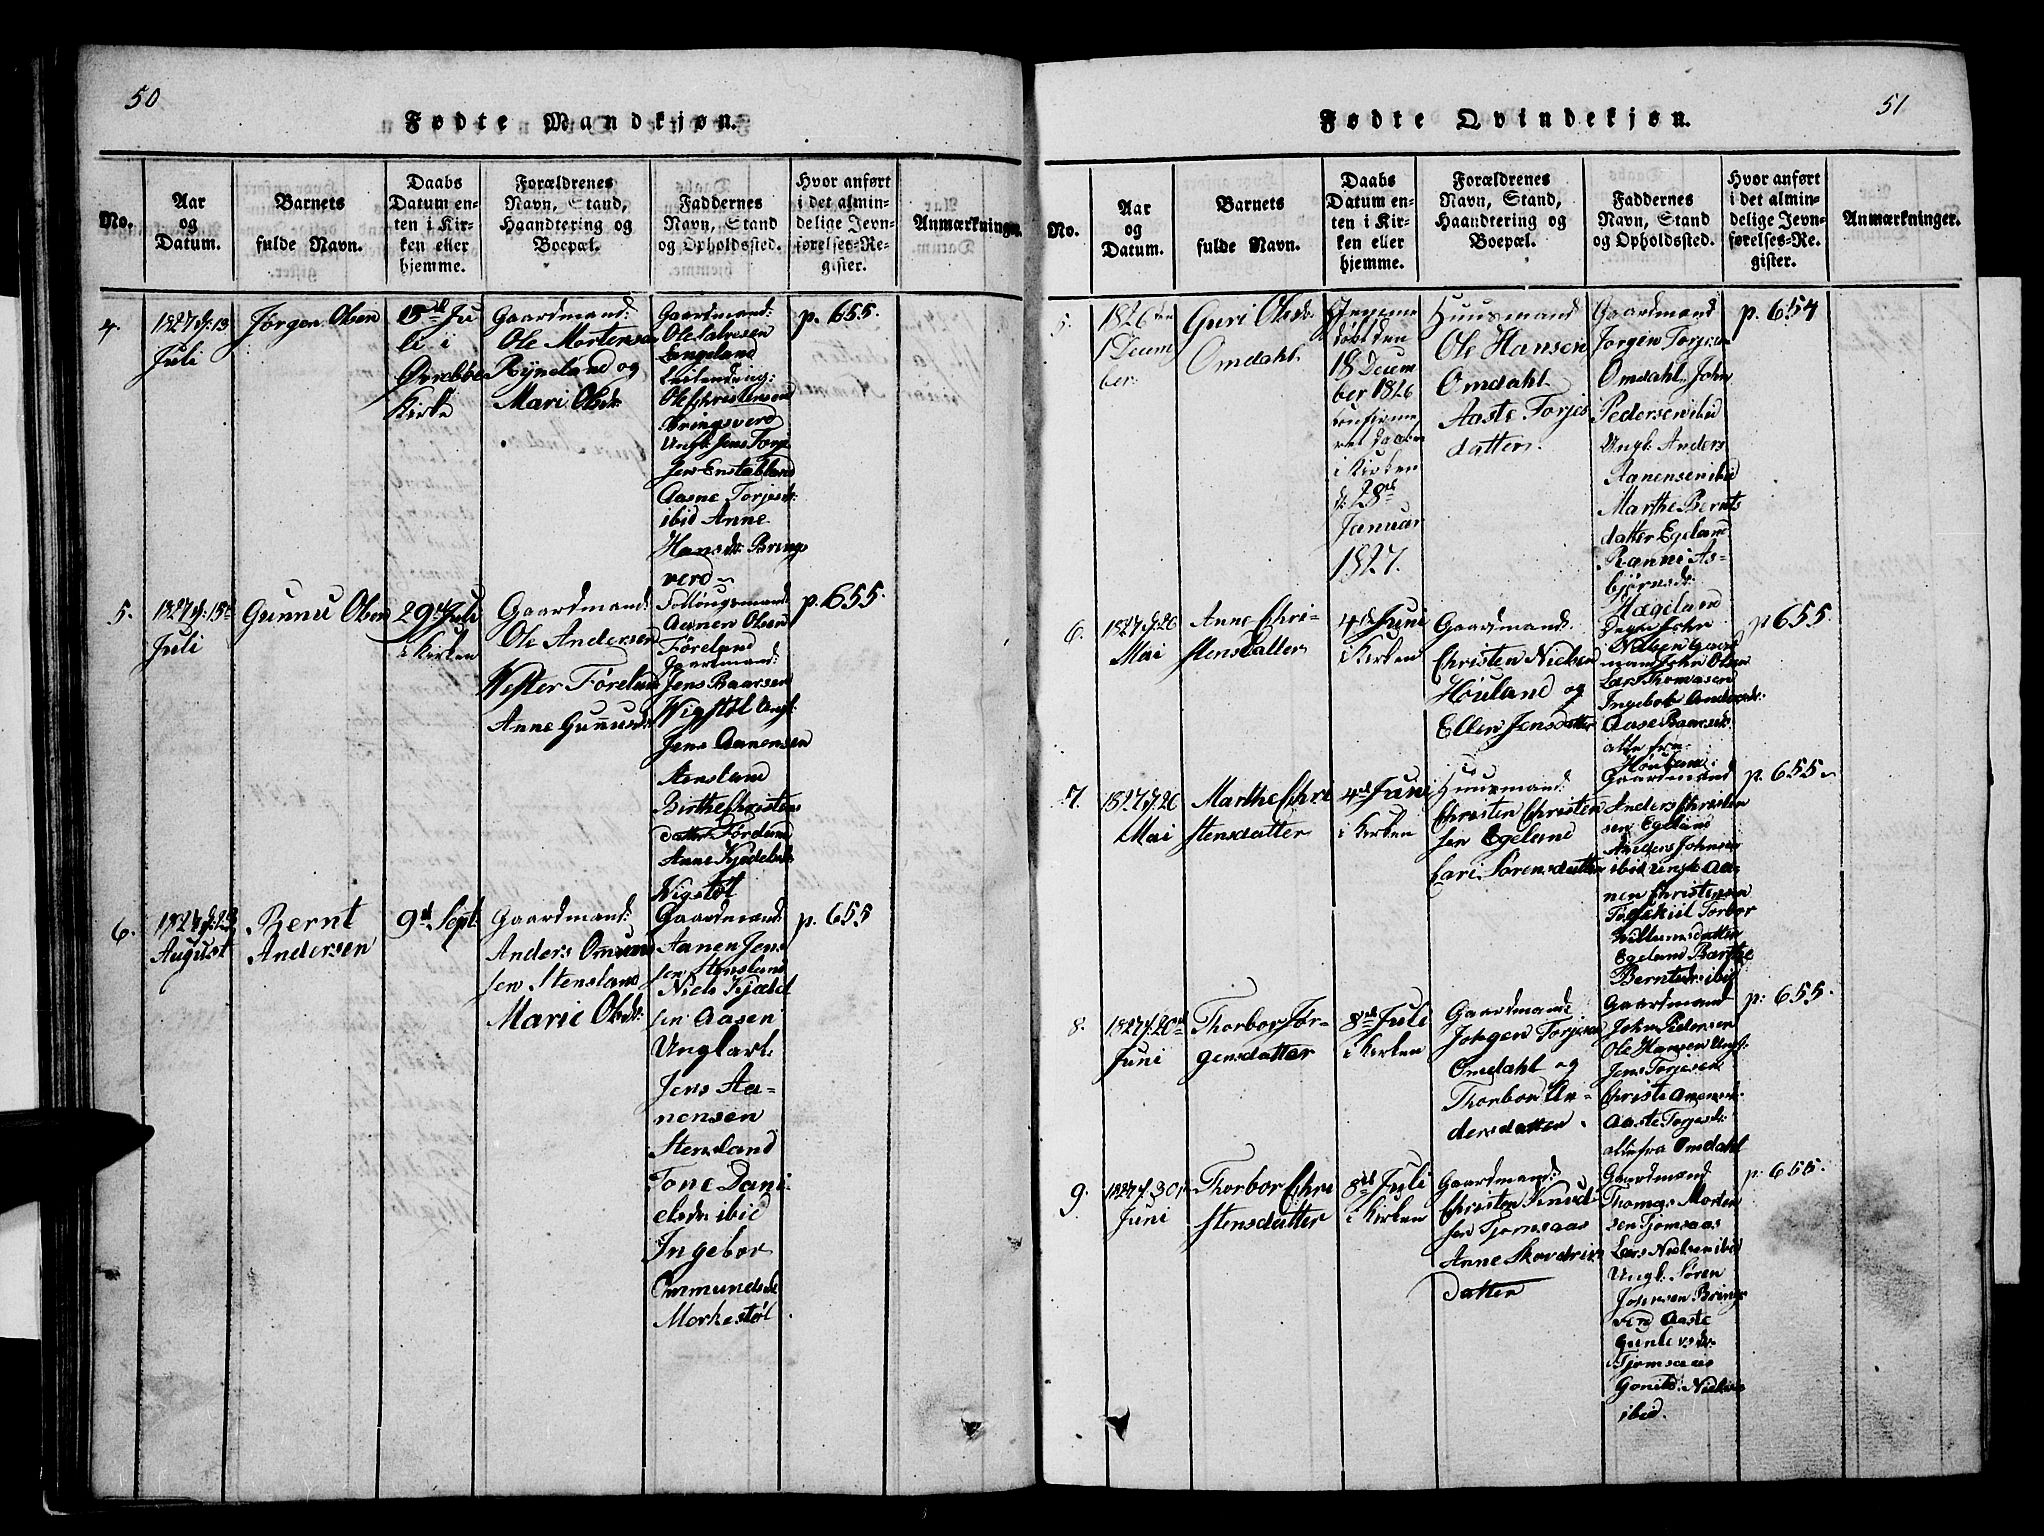 50
Fødte Mandkjøn.
No.
Aar
og
Datum.
Barnets
fulde Navn.
Daabs
Datum en-
ten i Kir-
ken eller
hjemme.
Forældrenes
Navn, Stand,
Haandtering og
Boepæl.
Faddernes
Navn, Stand
og Opholdssted.
Hvor anført
i det almin-
delige Jevn-
førelses-Re-
gister.
Anmærkninger.
4.
1827 d: 13
Juli
Jørgen Olsen
15de Ju
li i
Øvrebøe
Kirke
Gaardmand:
Ole Mortensen
Ryneland og
Mari Olsdr
Gaardmand:
Ole Salvesen
Langeland
Ole Christensen
Bringsverd
Ungk: Jens Torje
sen Enstabland
Aasne Torjesdr:
ibid Anne
Hansdr: Brings
verd
p. 655.
5.
1827 d: 15de
Juli
Gunnu Olsen
29de Juli
i Kirken
Gaardmand:
Ole Andersen
Vester Føreland
Anne Gunnusdr:
Aanen Olsen
Føreland
Gaardmand:
Jens Baarsen
Vigstøl Ungk:
Jens Aanensen
Stensland
Birthe Christens
datter Føreland
Anne Kjødelsdr
Vigstøl
p. 655.
6.
August
Bernt
Andersen
9de Sept.
Gaardmand:
Anders Omund
sen Stensland
Marie Olsdr:
Gaardmand:
Aanen Jens
sen Stensland
Niels Kjæld
sen Aasen
Ungkarl:
Jens Aa-
nensen
Stensland
Tone Dani
elsdr ibid
Ingebor
Ommundsdr
Morkestøl
p. 655
51
Fødte Qvindekjøn.
No.
Aar
og
Datum.
Barnets
fulde Navn.
Daabs
Datum en-
ten i Kir-
ken eller
hjemme.
Forældrenes
Navn, Stand,
Haandtering og
Boepæl.
Faddernes
Navn, Stand
og Opholdssted.
Hvor anført
i det almin-
delige Jevn-
førelses-Re-
gister.
Anmærkninger.
5.
1826 den
1 Decem
ber
Guri Olsdr
Omdahl.
Hjemme
døbt den
18 Decem
ber 1826
confirme
ret Daaben
i Kirken
d: 28de
Januar
1827.
Huusmand
Ole Hansen
Omdahl
Aaste Torjes
datter.
Gaardmand
Jørgen Torjesen
Omdahl, John
Pedersen ibid
Ungk: Anders
Aanensen ibid
Marthe Bernts
datter Egeland
Ranni As-
bjørnsdr:
Hægeland
p. 654
6.
1827 d. 26
Mai
Anne Chri-
stensdatter
4de Juni
i Kirken
Gaardmand:
Christen Nielsen
Høuland og
Ellen Jensdatter
Degn John
Nielsen Gaard
mand John Olsen
Lars Thomasen
Ingebor Andersdr:
Aase Baarsdr:
alle fra
Høuland:
p 655.
7.
1827 d. 26
Mai
Marthe Chri
stensdatter
4de Juni
i Kirken
Huusmand:
Christen Christen
sen Egeland
Kari Sørensdatter
Gaardmand
Anders Christen
sen Egeland
Anders Johnsen
ibid Ungk: Aa-
nen Christensen
Torbor
Willumsdatter
Egeland Barthe
Berntsdr: ibid
p. 655.
8.
1827 d. 20de
Juni
Thorbor Jør-
gensdatter
8de Juli
i Kirken
Gaardmand:
Jørgen Torjesen
Omdahl og
Thorbor An-
dersdatter.
Gaardmand
John Pedersen
Ole Hansen Ungk:
Jens Torjesen
Christe Aanensdr.
Aaste Torjesdr:
alle fra Omdahl
p: 655.
9.
1827 d. 30te
Juni
Thorbor Chri
stensdatter
8de Juli
i Kirken
Gaardmand:
Christen Knud
sen Tjomsaas
Anne Skovdriks
datter
Gaardmand
Thomas Morten
sen Tjomsaas
Lars Nielsen ibid
Ungk: Søren
Johnsen Brings
verd Aaste
Gunlevsdr:
Tjomsaas
Gonild: Nielsdr
ibid.
p. 655.